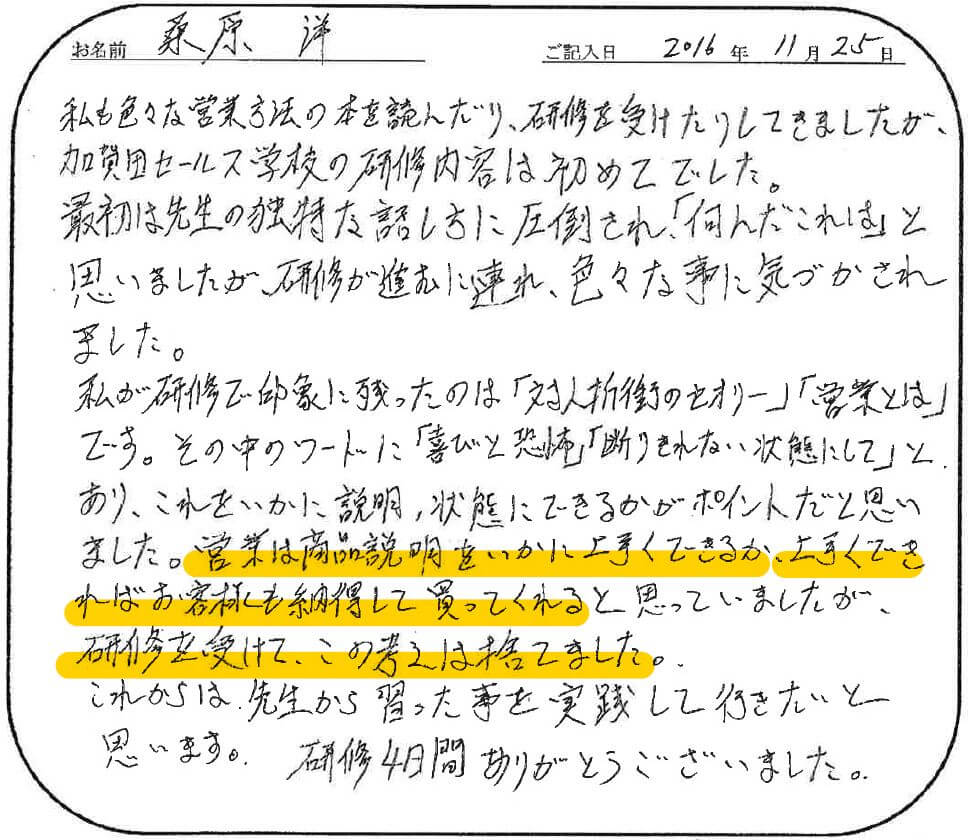 お名前 桑原 洋 ご記入日 2016年 11月 25日
私も色々な営業方法の本を読んだり、研修を受けたりしてきましたが、
加賀田セールス学校の研修内容は初めてでした。
最初は先生の独特な話し方に圧倒され、「何んだこれは」と
思いましたが、研修が進むに連れ、色々な事に気づかされ
ました。
私が研修で印象に残ったのは「対人折衝のセオリー」「営業とは」
です。その中のワードに「喜びと恐怖」「断りきれない状態にして」と
あり、これをいかに説明,状態にできるかがポイントだと思い
ました。営業は商品説明をいかに上手くできるか、上手くでき
ればお客様も納得して買ってくれると思っていましたが、
研修を受けて、この考えは捨てました。
これからは、先生から習った事を実践して行きたいと
思います。 研修4日間ありがとうございました。